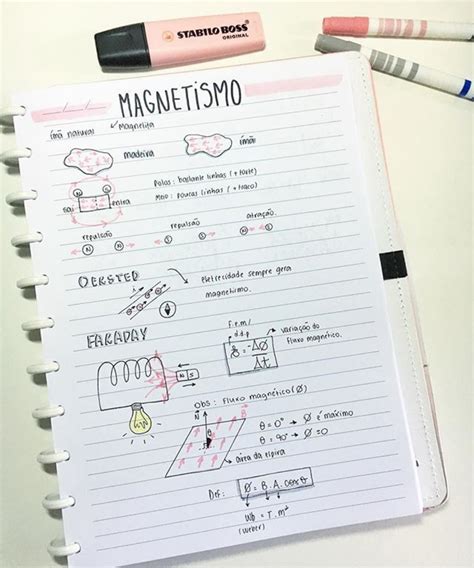 STABILO BOSS
ORIGINAL
MAGNETISMO
ímã natural
Magnetita
madeira
ímãr
N S
sai
entra
Polos: bastante linhas (+ forte)
Meio: poucas linhas (+ fraco)
repulsão
repulsão
atração
N N S S N S
OERSTED
eletricidade sempre gera
magnetismo.
i
FARADAY
N S
f.e.m/
d.d.p
variação do
fluxo magnético.
Ɛ = -ΔØ
Δt
Obs: Fluxo magnético (Ø)
N
θ
B
θ = 0° → Ø é máximo
θ = 90° → Ø = 0
área da espira
Def:
Ø = B.A.cosθ
Wb = T.m²
(Weber)